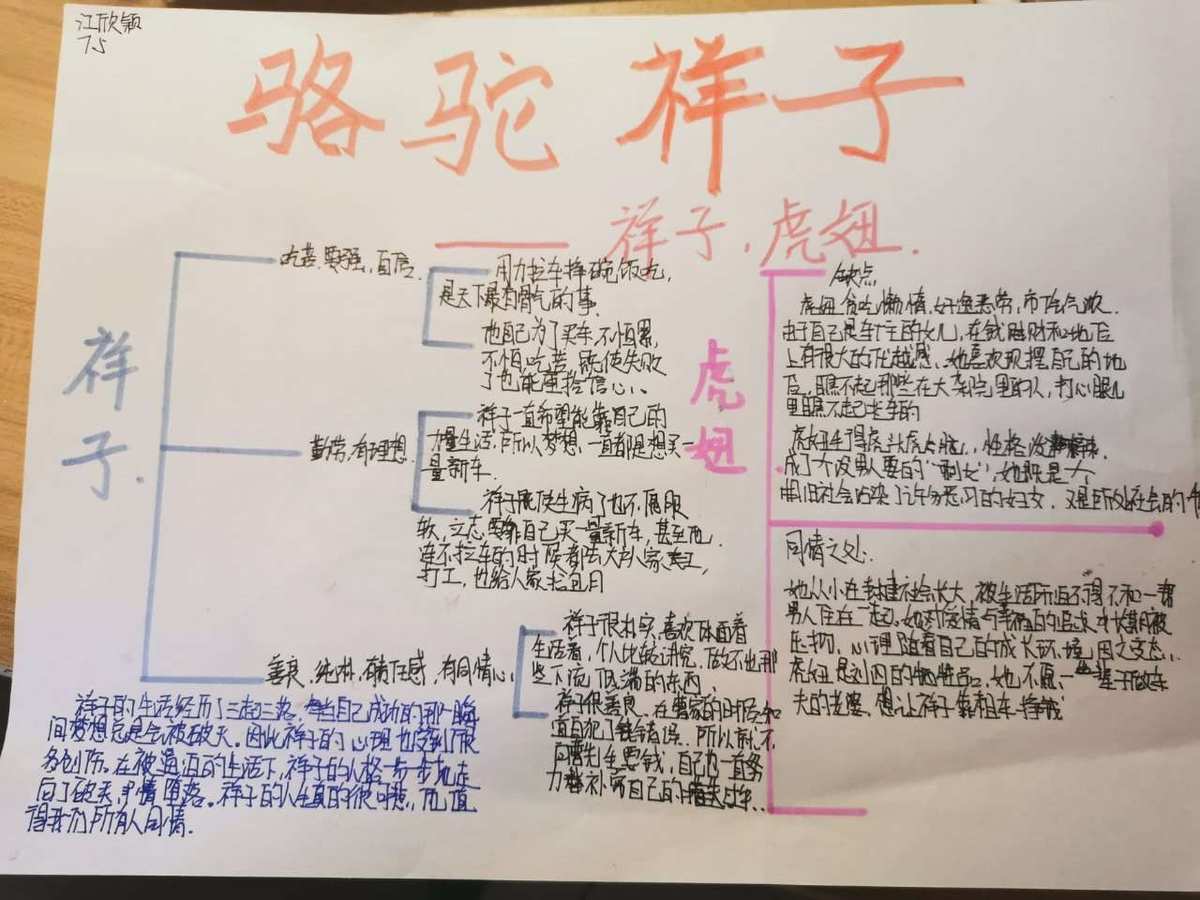 江欣颖
75
骆驼祥子
祥子,虎妞.
祥子.
吃苦,要强,自信.
用力拉车挣碗饭吃,
是天下最有骨气的事.
他自己为了买车,不怕累,
不怕吃苦,既使失败
了也能重拾信心、.
勤劳,有理想
祥子一直希望能靠自己的
力量生活,所以梦想,一直都是想买一
量新车.
祥子既使生病了也不屈服
软,立志要靠自己买一量新车,甚至他
连不拉车的时候都去大户人家
打工,也给人家拉包月
善良,纯朴,有责任感,有同情心,
祥子很扎实,喜欢体面着
生活着,个人比较讲究,做不出那
些下流,低端的东西、
祥子很善良,在曹家的时侯知
道自犯了错误,所以就不
向曹先生要钱,自己也一直努
力弥补,自己的过失...
祥子的生活经历了三起三落,当自己成功的那一瞬
间梦想总是会被破灭.因此祥子的心理也受到了很
多创伤.在被逼迫的生活下,祥子的人格一步一步地走
向了破灭,堕落.祥子的人生真的很可悲,他值
得我们所有人同情.
虎妞.
缺点
虎妞贪吃懒惰,好逸恶劳,市侩气浓.
由于自己是车厂主的女儿,在钱财和地位
上有很大的优越感,她喜欢现摆自己的地
位,瞧不起那些在大杂院里的人,打心眼儿
里瞧不起拉车的
虎妞生得虎头虎脑,性格泼
成了个没男人要的"剩女",她既是个
由旧社会沾染了许多恶习的妇女,又是所处社会的
同情之处.
她从小在封建社会长大,被生活所迫不得不和一帮
男人住在一起.她对爱情与幸福的追求才长期被
压抑,心理随着自己的成长环境,因之变态.
虎妞是刘四的牺牲品,她也不愿一
夫的老婆,想让祥子靠租车挣钱